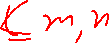 ≤ m, n